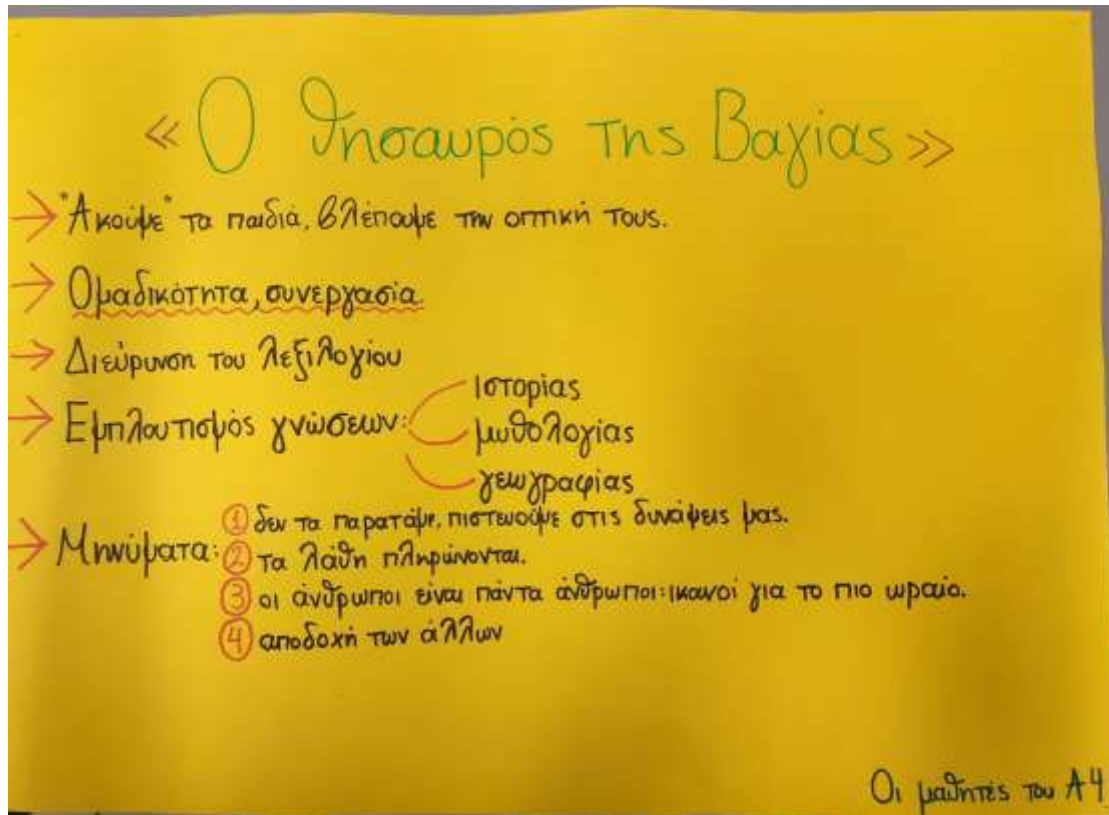 « Ο θησαυρός της Βαγίας »
"Ακούμε" τα παιδιά, βλέπουμε την οπτική τους.
Ομαδικότητα, συνεργασία.
Διεύρυνση του λεξιλογίου
Εμπλουτισμός γνώσεων:
ιστορίας
μυθολογίας
γεωγραφίας
Μηνύματα:
① δεν τα παρατάμε, πιστεύουμε στις δυνάμεις μας.
② τα λάθη πληρώνονται.
③ οι άνθρωποι είναι πάντα άνθρωποι: ικανοί για το πιο ωραίο.
④ αποδοχή των άλλων
Οι μαθητές του Α4